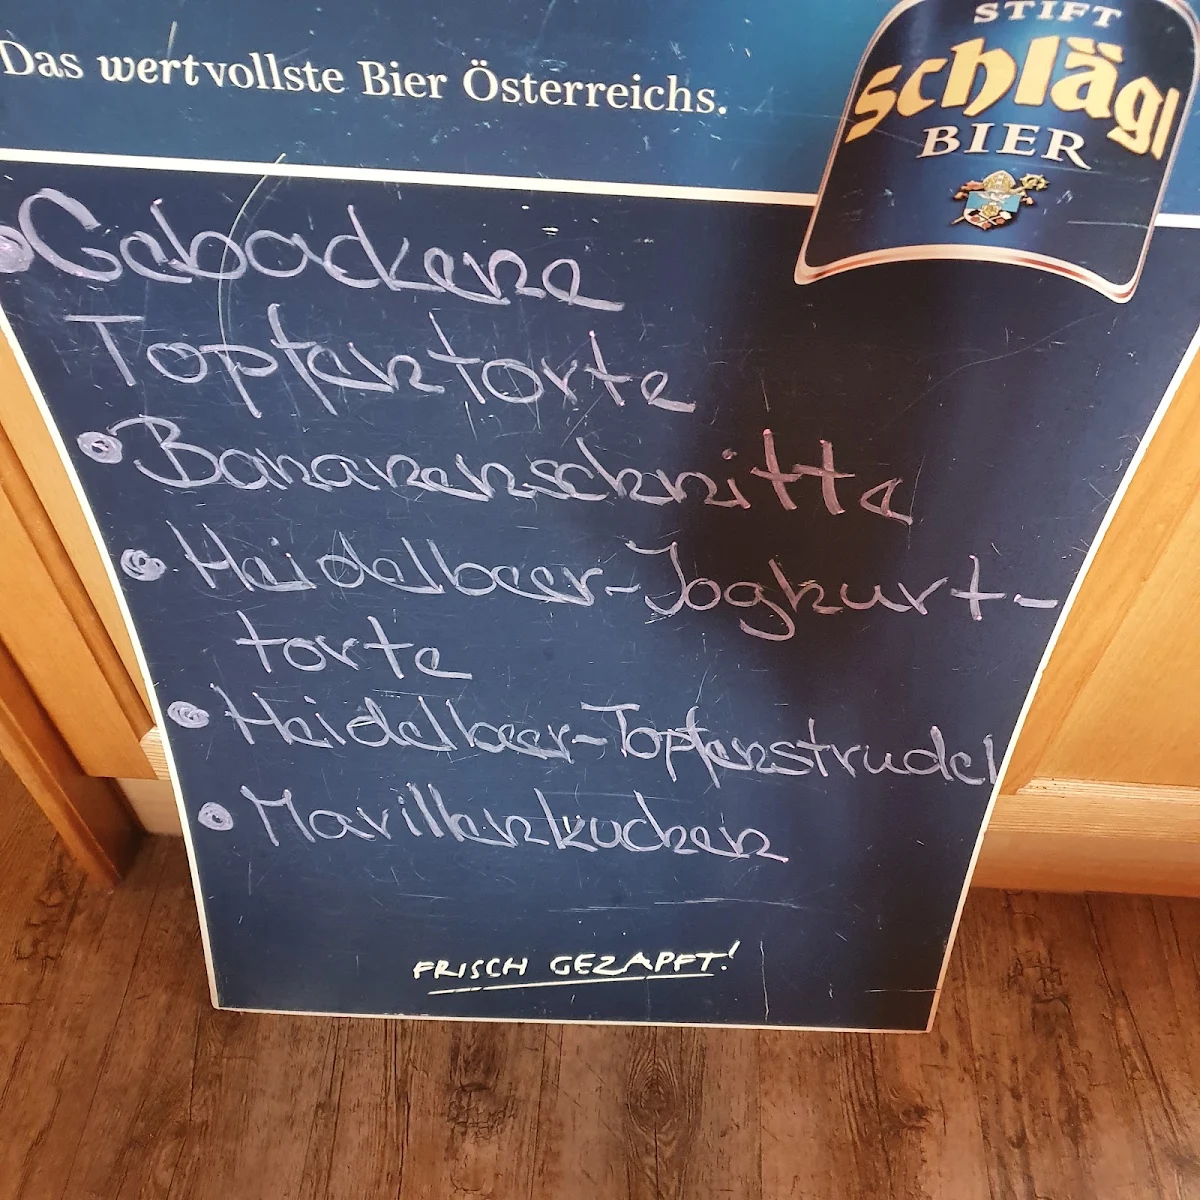 Das wertvollste Bier Österreichs.
STIFT
schlägl
BIER
Gebackene
Topfentorte
Bananenschnitte
Heidelbeer-Joghurt-
torte
Heidelbeer-Topfenstrudel
Marillenkuchen
FRISCH GEZAPFT!